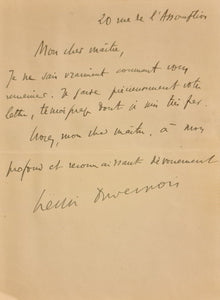 20 rue de l'Assomption
Mon cher maître,
Je ne sais vraiment comment vous
remercier. Je garde précieusement votre
lettre, témoignage dont je suis très fier.
Croyez, mon cher maître, à mon
profond et reconnaissant dévouement
Henri Duvernois